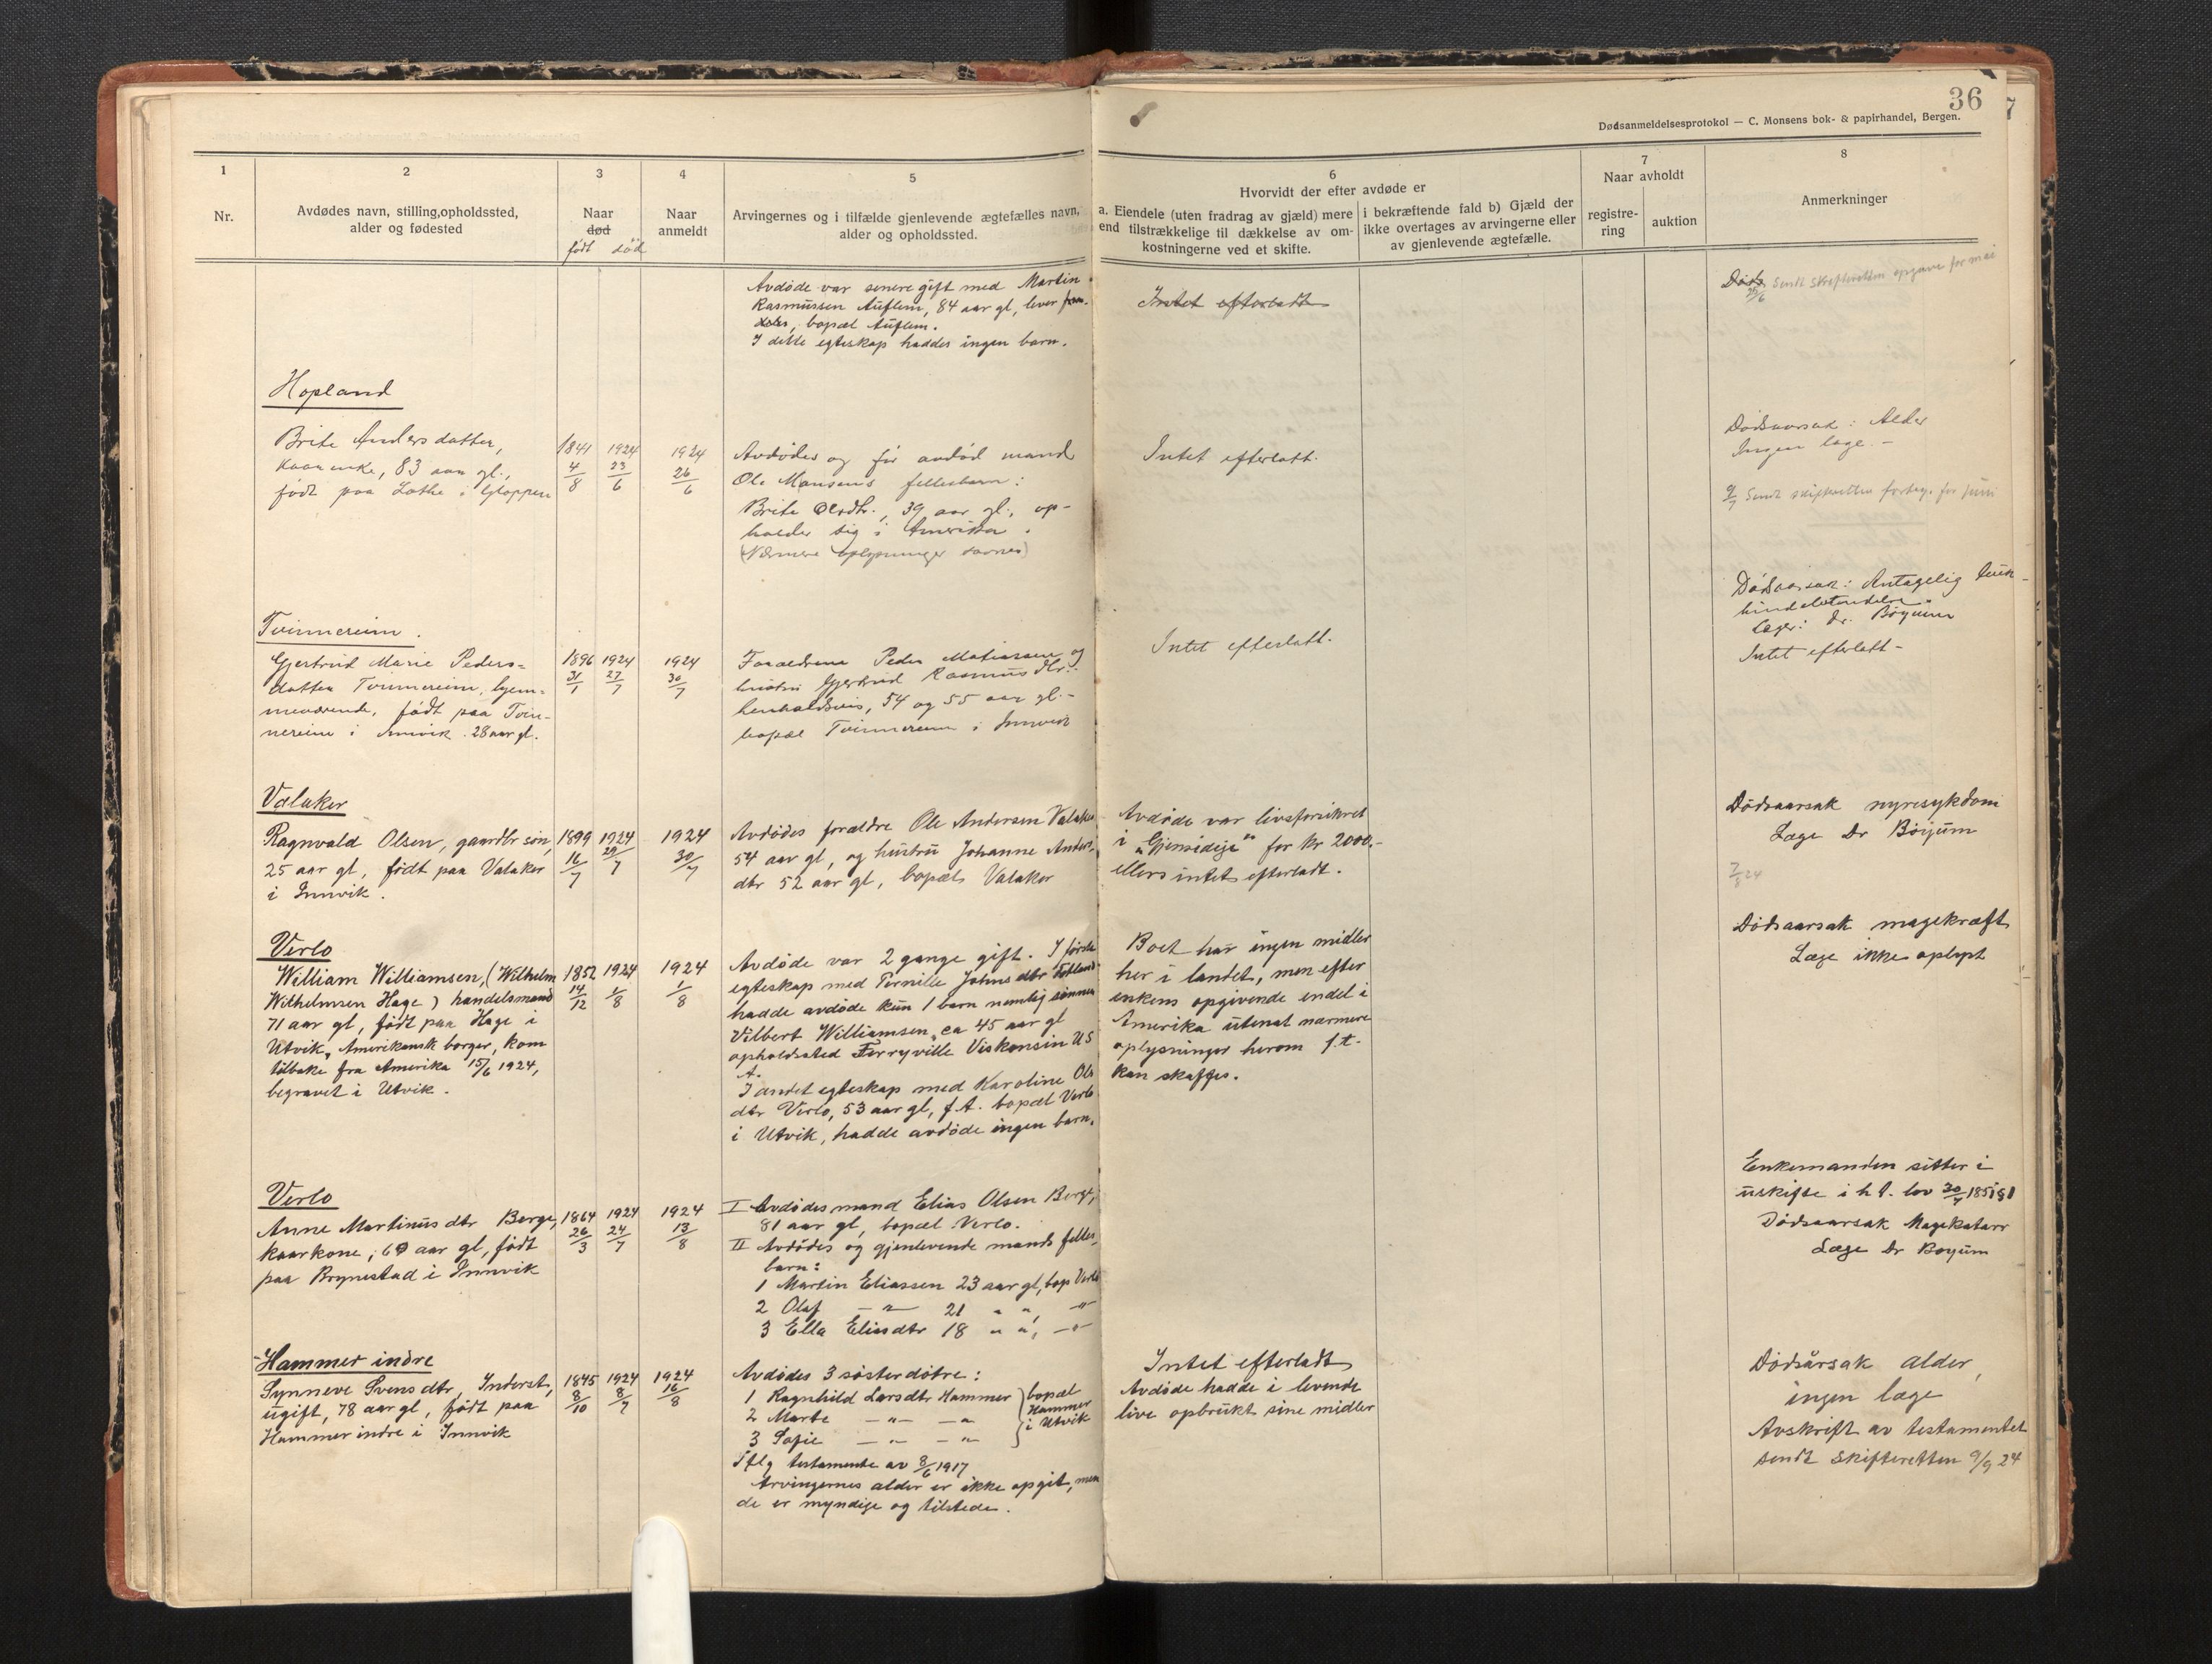 36
Dødsanmeldelsesprotokol — C. Monsens bok- & papirhandel, Bergen.
1
Nr.
2
Avdødes navn, stilling, opholdssted,
alder og fødested
3
Naar
død
født død
4
Naar
anmeldt
5
Arvingernes og i tilfælde gjenlevende ægtefælles navn,
alder og opholdssted.
6
Hvorvidt der efter avdøde er
a. Eiendele (uten fradrag av gjæld) mere
end tilstrækkelige til dækkelse av om-
kostningerne ved et skifte.
i bekræftende fald b) Gjæld der
ikke overtages av arvingerne eller
av gjenlevende ægtefælle.
7
Naar avholdt
registre-
ring
auktion
8
Anmerkninger
Avdøde var senere gift med Martin
Rasmussen Auflem, 84 aar gl, lever frem-
deles, bopæl Auflem.
I dette egteskap haddes ingen barn.
Intet efterladt
Døds
25/6 Sendt skifteretten opgave for mai
Hopland
Brite Andersdatter,
kaarenke, 83 aar gl.,
født paa Lothe i Gloppen
1841 4/8
1924 23/6
1924 26/6
Avdødes og før avdød mand
Ole Monsens fellesbarn:
Brite Olsdtr., 39 aar gl., op-
holder sig i Amerika.
(Nærmere oplysninger savnes)
Intet efterlatt.
Dødsaarsak: Alder
Ingen læge. -
9/7 Sendt skifteretten forteg. for juni
Tvinnereim.
Gjertrud Marie Peders-
datter Tvinnereim, hjem-
meværende, født paa Tvin-
nereim i Innvik. 28 aar gl.
1896 31/1
1924 27/7
1924 30/7
Forældrene Peder Matiassen og
hustru Gjertrud Rasmusdtr.
henholdsvis, 54 og 55 aar gl. -
bopæl Tvinnereim i Innvik
Intet efterlatt.
Dødsaarsak: Antagelig
Læge: Dr. Bøyum
Intet efterlatt -
Valaker
Ragnvald Olsen, gaardbr søn,
25 aar gl, født paa Valaker
i Innvik.
1899 16/7
1924 29/7
1924 30/7
Avdødes forældre Ole Andersen Valaker
54 aar gl, og hustru Johanne Anders,
dtr 52 aar gl, bopæl Valaker
Avdøde var livsforsikret
i „Gjensidige" for Kr 2000,-
ellers intet efterladt.
Dødsaarsak nyresykdom
Læge Dr Böyum
7/8 24
Verlo
William Williamsen, (Wilhelm
Wilhelmsen Hage) handelsmand
71 aar gl, født paa Hage i
Utvik, Amerikansk borger, kom
tilbake fra Amerika 15/6 1924,
begravet i Utvik.
1852 14/12
1924 1/8
1924 1/8
Avdøde var 2 gange gift. I første
egteskap med Pernille Johnsdtr
hadde avdøde kun 1 barn nemlig sønnen
Vilbert Williamsen, ca 45 aar gl
opholdssted Ferryville Viskonsin U S
A.
I andet egteskap med Karoline Ols
dtr Verlo, 53 aar gl, f.t. bopæl Verlo
i Utvik, hadde avdøde ingen barn.
Boet har ingen midler
her i landet, men efter
enkens opgivende endel i
Amerika utenat nærmere
oplysninger herom f.t.
kan skaffes.
Dødsaarsak magekræft
Læge ikke oplyst
Verlo
Anne Martinusdtr Berge,
kaarkone, 60 aar gl, født
paa Brynestad i Innvik
1864 26/3
1924 24/7
1924 13/8
I Avdødes mand Elias Olsen Berge,
81 aar gl, bopæl Verlo.
II Avdødes og gjenlevende mands felles,
barn:
1 Martin Eliassen 23 aar gl, bop Verlo
2 Olaf — " — 21 " ", — " —
3 Ella Eliasdtr 18 " ", — " —
Enkemanden sitter i
uskifte i h t. lov 30/7 1851 § 1
Dødsaarsak Magekatarr
Læge Dr Boyum
Hammer indre
Synneve Svensdtr, Inderst,
ugift, 78 aar gl, født paa
Hammer indre i Innvik
1845 8/10
1924 8/7
1924 16/8
Avdødes 3 søsterdøtre:
1 Ragnhild Larsdtr Hammer
2 Marte — " — — "
3 Sofie — " — — "
bopæl
Hammer
i Utvik
Iflg testamente av 8/6 1917
Arvingernes alder er ikke opgit, men
de er myndige og tilstede.
Intet efterladt
Avdøde hadde i levende
live opbrukt sine midler
Dødsårsak alder,
ingen læge
Avskrift av testamentet
sendt skifteretten 9/9 24